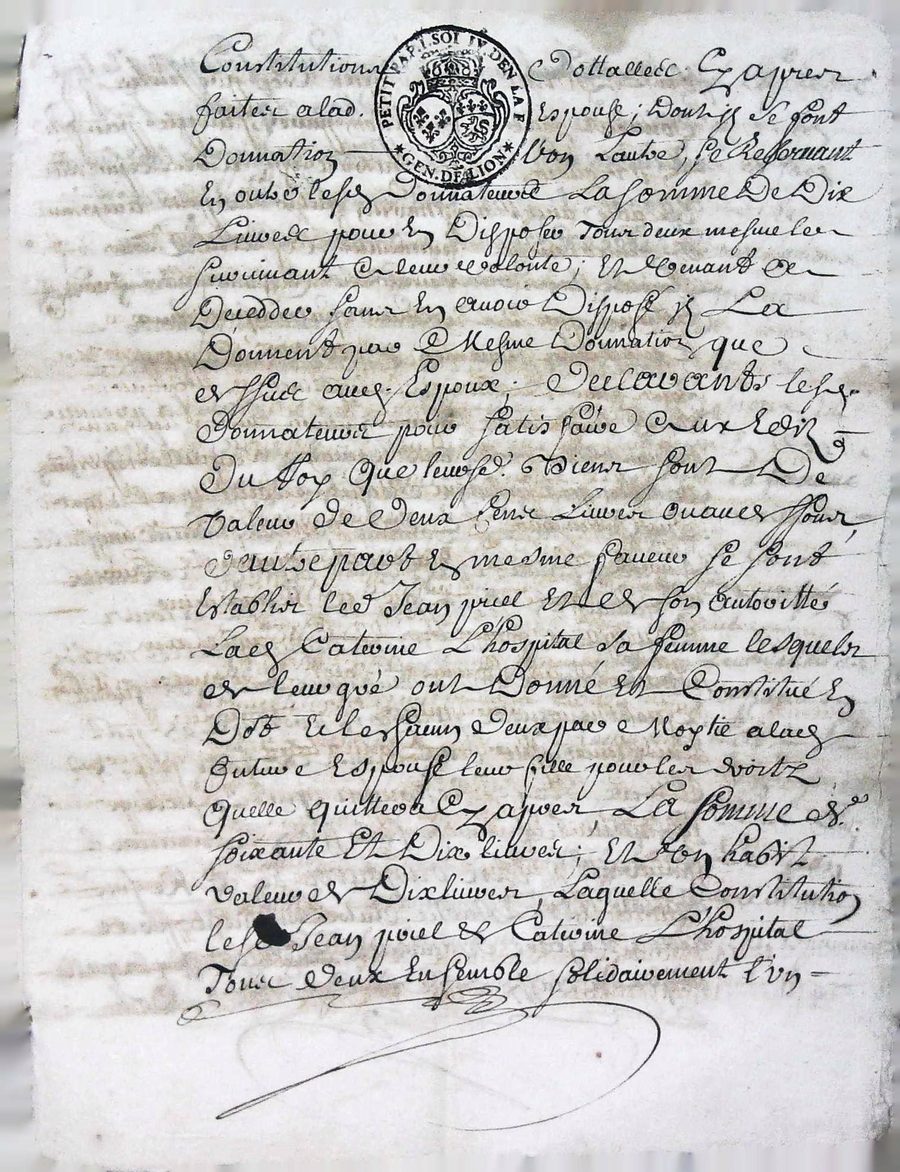 PETIT PAP. I. SOL IV. DEN. LA F.
GEN. DE LION
Constitutions Dottalles Cy apres
faites a lad. Espouse; Dont Il Se font
Donnation L'un Lautre, se Reservant
En outre lesd Donnateurs La somme De Dix
Livres pour En Disposer Tous deux mesme le
survivant a leur volonté; Et venant a
Deceddes sans En avoir Disposé Il La
Donnent par Mesme Donnation que
dessus aud Espoux; Declarants lesd
Donnateurs pour satisfaire aux Edits
Du Roy Que leursd. Biens sont De
valeur de Deux Cens Livres
dautre part & mesme faveur se sont
Establis led Jean piel Et de son autoritté
Lad Caterine L'hospital sa femme lesquels
de leur gré ont Donné Et Constitué En
Dot Deux par Moytié a lad
future Espouse leur fille pour les droitz
quelle quittera Cy apres, La somme de
soixante Et Dix livres; Et un habit
valeur de Dix livres, Laquelle Constitution
lesd Jean piel & Caterine L'hospital
Tous deux Ensemble solidairement l'un